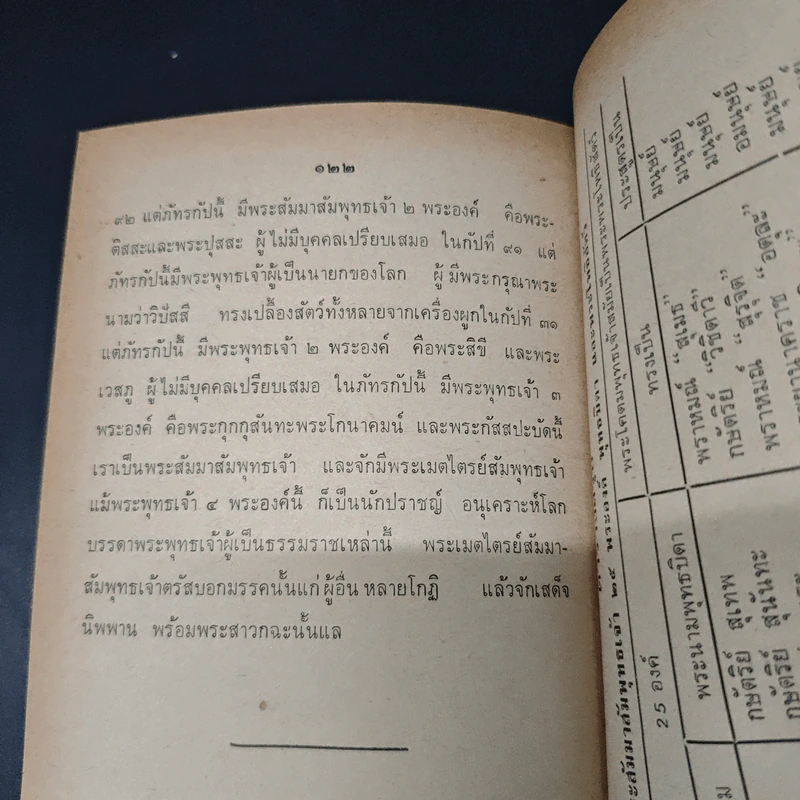 ๑๒๒
๙๒ แต่ภัทรกัปนี้ มีพระสัมมาสัมพุทธเจ้า ๒ พระองค์ คือพระ-
ติสสะและพระปุสสะ ผู้ไม่มีบุคคลเปรียบเสมอ ในกัปที่ ๙๑ แต่
ภัทรกัปนี้มีพระพุทธเจ้าผู้เป็นนายกของโลก ผู้มีพระกรุณาพระ
นามว่าวิปัสสี ทรงเปลื้องสัตว์ทั้งหลายจากเครื่องผูกในกัปที่ ๓๑
แต่ภัทรกัปนี้ มีพระพุทธเจ้า ๒ พระองค์ คือพระสิขี และพระ
เวสภู ผู้ไม่มีบุคคลเปรียบเสมอ ในภัทรกัปนี้ มีพระพุทธเจ้า ๓
พระองค์ คือพระกุกกุสันทะพระโกนาคมน์ และพระกัสสปะบัดนี้
เราเป็นพระสัมมาสัมพุทธเจ้า และจักมีพระเมตไตรย์สัมพุทธเจ้า
แม้พระพุทธเจ้า ๔ พระองค์นี้ ก็เป็นนักปราชญ์ อนุเคราะห์โลก
บรรดาพระพุทธเจ้าผู้เป็นธรรมราชเหล่านี้ พระเมตไตรย์สัมมา-
สัมพุทธเจ้าตรัสบอกมรรคนั้นแก่ผู้อื่น หลายโกฏิ แล้วจักเสด็จ
นิพพาน พร้อมพระสาวกฉะนั้นแล
25 องค์
พระนามพุทธบิดา
กษัตริย์ สุเทพ
กษัตริย์ สุนันทะ
ทรงเป็น
พราหมณ์ "สุเมธ"
กษัตริย์ "วิชิตาวี"
พราหมณ์ "สุรุจิต"
มนุษย์
มนุษย์
มนุษย์
อมนุษย์
มนุษย์